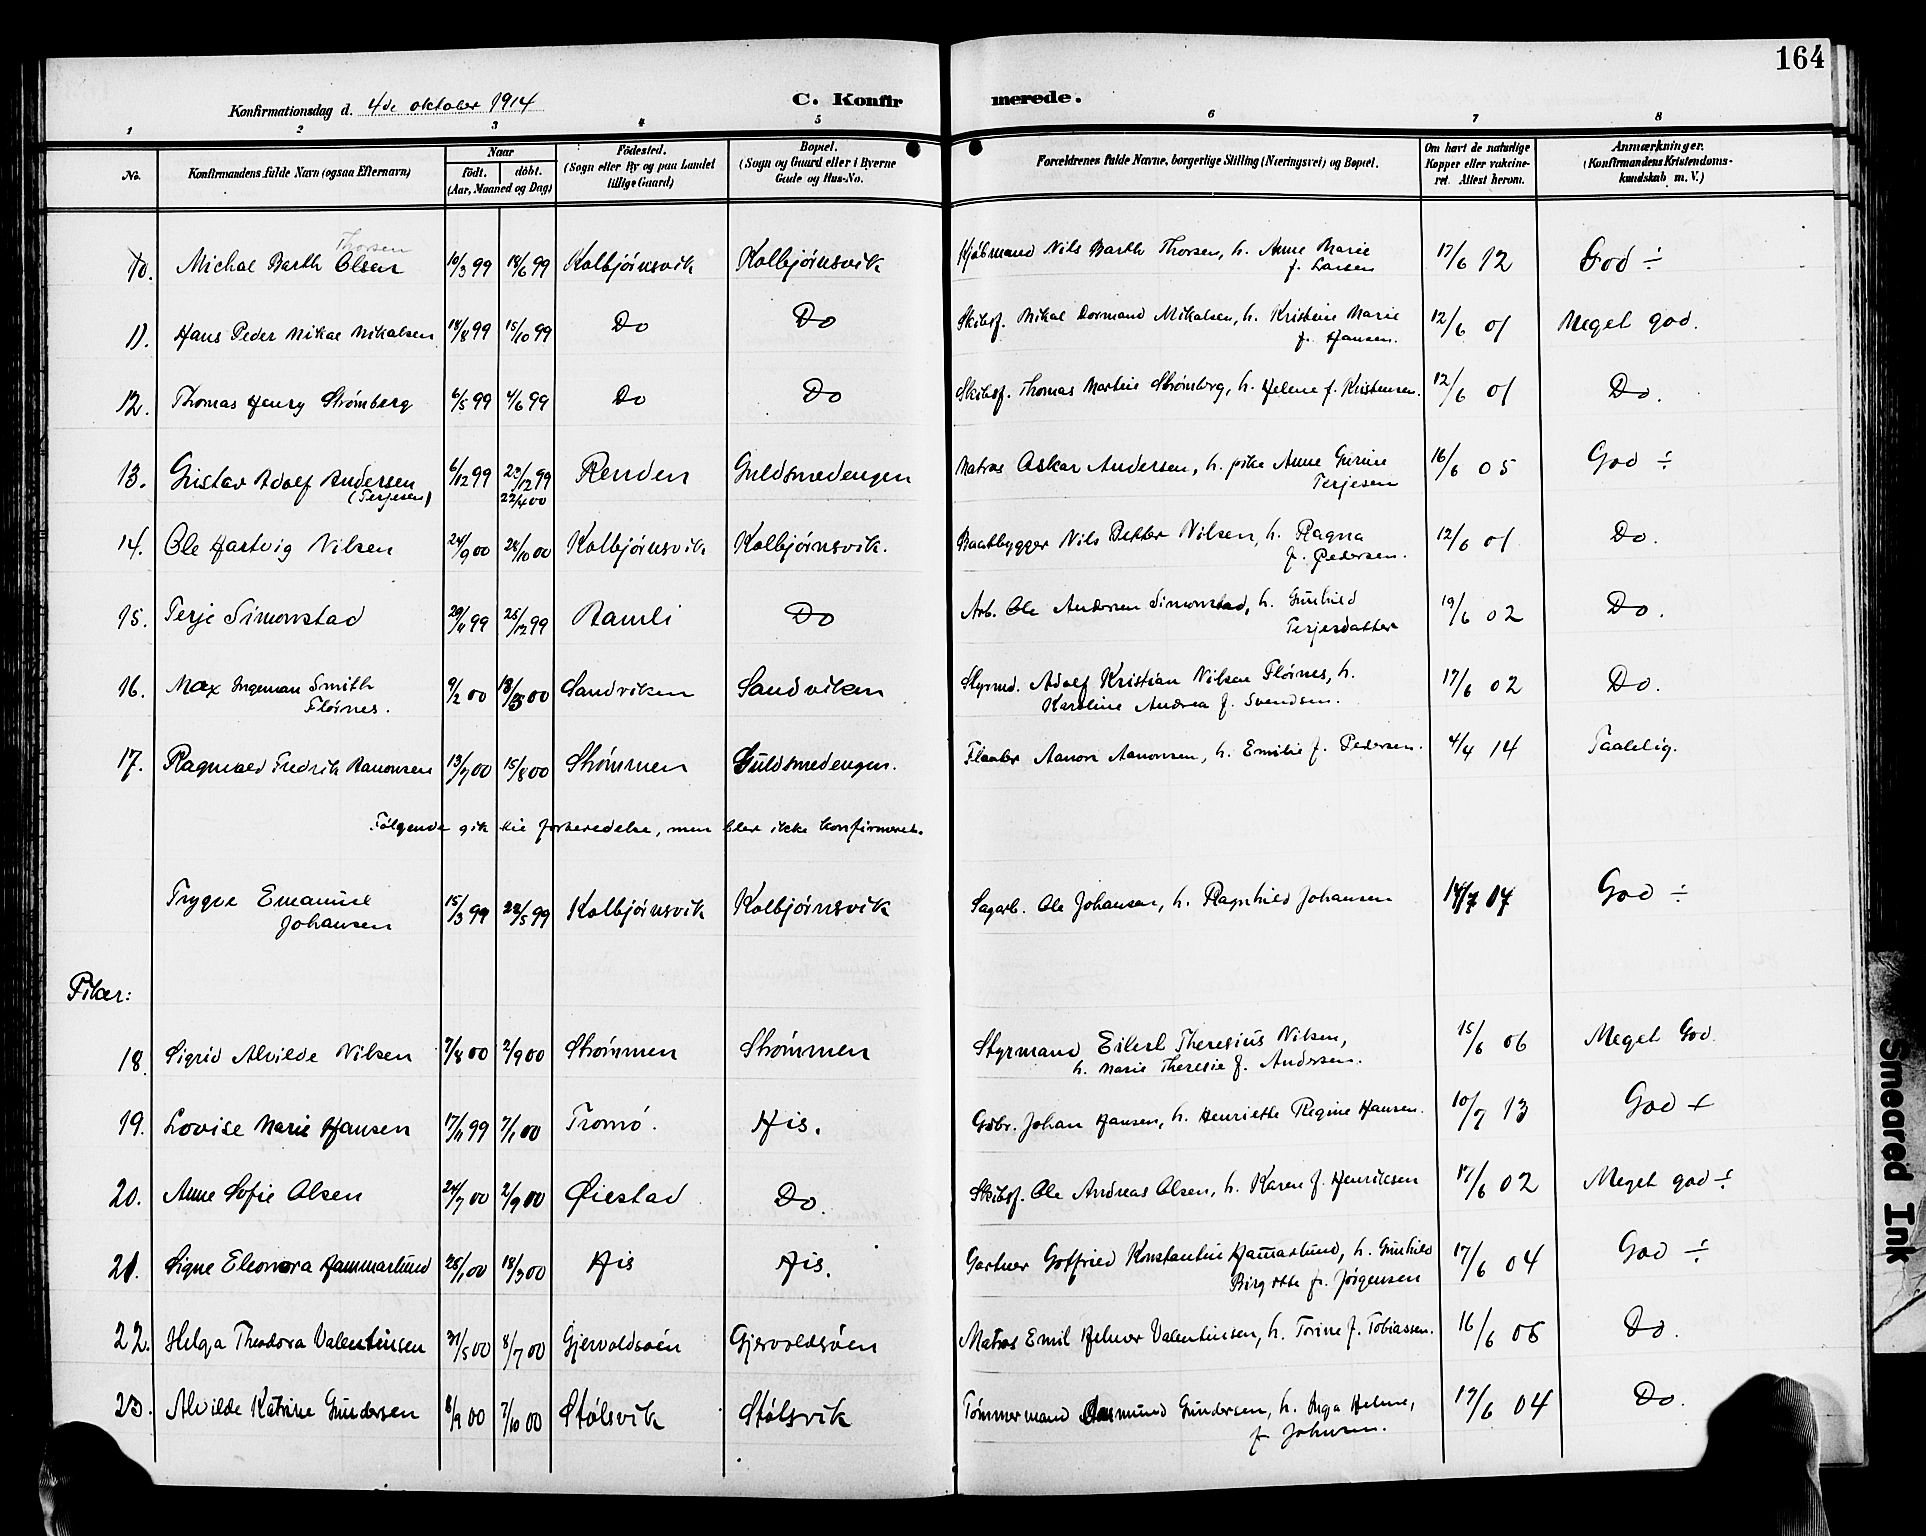 164
Konfirmationsdag d. 4de oktober 1914 C. Konfirmerede.
1 2 3 4 5 6 7 8
No. Konfirmandens fulde Navn (ogsaa Efternavn) Naar født. døbt. (Aar, Maaned og Dag) Fødested. (Sogn eller By og paa Landet tillige Gaard) Bopæl. (Sogn og Gaard eller i Byerne Gade og Hus-No. Forældrenes fulde Navne, borgerlige Stilling (Næringsvei) og Bopæl. Om havt de naturlige Kopper eller vakcineret. Attest herom. Anmærkninger. (Konfirmandens Kristendomskundskab m. V.)
Thorsen
10. Michal Barth Olsen 10/3 99 18/6 99 Kolbjørnsvik Kolbjørnsvik Kjøbmand Nils Barth Thorsen, h. Anne Marie 17/6 12 God ÷
f. Larsen
11. Hans Peder Mikal Mikalsen 18/8 99 15/10 99 Do Do Skibsf. Mikal Dormand Mikalsen, h. Kristine Marie 12/6 01 Meget god.
f. Hansen.
12. Thomas Henry Strømberg 6/5 99 4/6 99 Do Do Skibsf. Thomas Martin Strømberg, h. Helene f. Kristensen. 12/6 01 Do.
13. Gustav Adolf Andersen 6/12 99 23/12 99 Renden Guldsmedengen Matros Oskar Andersen, h. pike Anne Gurine 16/6 05 God ÷
(Terjesen) 22/4 00 Terjesen
14. Ole Hartvig Nilsen 24/9 00 28/10 00 Kolbjørnsvik Kolbjørnsvik. Baatbygger Nils Petter Nilsen, h. Ragna 12/6 01 Do.
f. Pedersen.
15. Terje Simonstad 29/11 99 25/12 99 Ramli Do Arb. Ole Andersen Simonstad, h. Gunhild 19/6 02 Do.
Terjesdatter
16. Max Ingeman Smith 9/2 00 18/3 00 Sandviken Sandviken Styrmd. Adolf Kristian Nilsen Fløines, h. 17/6 02 Do.
Fløines. Karoline Andrea f. Svendsen.
17. Ragnvald Fredrik Aanonsen 13/7 00 15/8 00 Strømmen Guldsmedengen. Aanon Aanonsen, h. Emilie f. Pedersen. 4/4 14 Taalelig.
Følgende gik til forberedelse, men blev ikke konfirmeret.
Trygve Emanuel 15/3 99 22/5 99 Kolbjørnsvik Kolbjørnsvik Sagarb. Ole Johansen, h. Ragnhild Johansen 14/7 07 God ÷
Johansen
Piker:
18. Sigrid Alvilde Nilsen 7/8 00 2/9 00 Strømmen Strømmen Styrmand Eilert Theresius Nilsen, 15/6 06 Meget God.
h. Marie Theresie f. Andersen.
19. Lovise Marie Hansen 17/11 99 7/1 00 Tromø. His. Gdbr. Johan Hansen, h. Henriette Regine Hansen. 10/7 13 God +
20. Anne Sofie Olsen 24/7 00 2/9 00 Øiestad Do. Skibsf. Ole Andreas Olsen, h. Karen f. Henriksen 17/6 02 Meget god ÷
21. Signe Eleonora Hammarlund 28/1 00 18/3 00 His His. Gartner Gotfried Konstantin Hammarlund, h. Gunhild 17/6 04 God ÷
Birgitte f. Jørgensen
22. Helga Theodora Valentinsen 31/5 00 8/7 00 Gjervoldsøen Gjervoldsøen Matros Emil Helmer Valentinsen, h. Torine f. Tobiassen. 16/6 06 Do.
23. Alvilde Katrine Gundersen 8/9 00 7/10 00 Stølsvik Stølsvik Tømmermand Aasmund Gundersen, h. Inga Helene, 17/6 04 Do.
f. Johnsen.
Smeared Ink